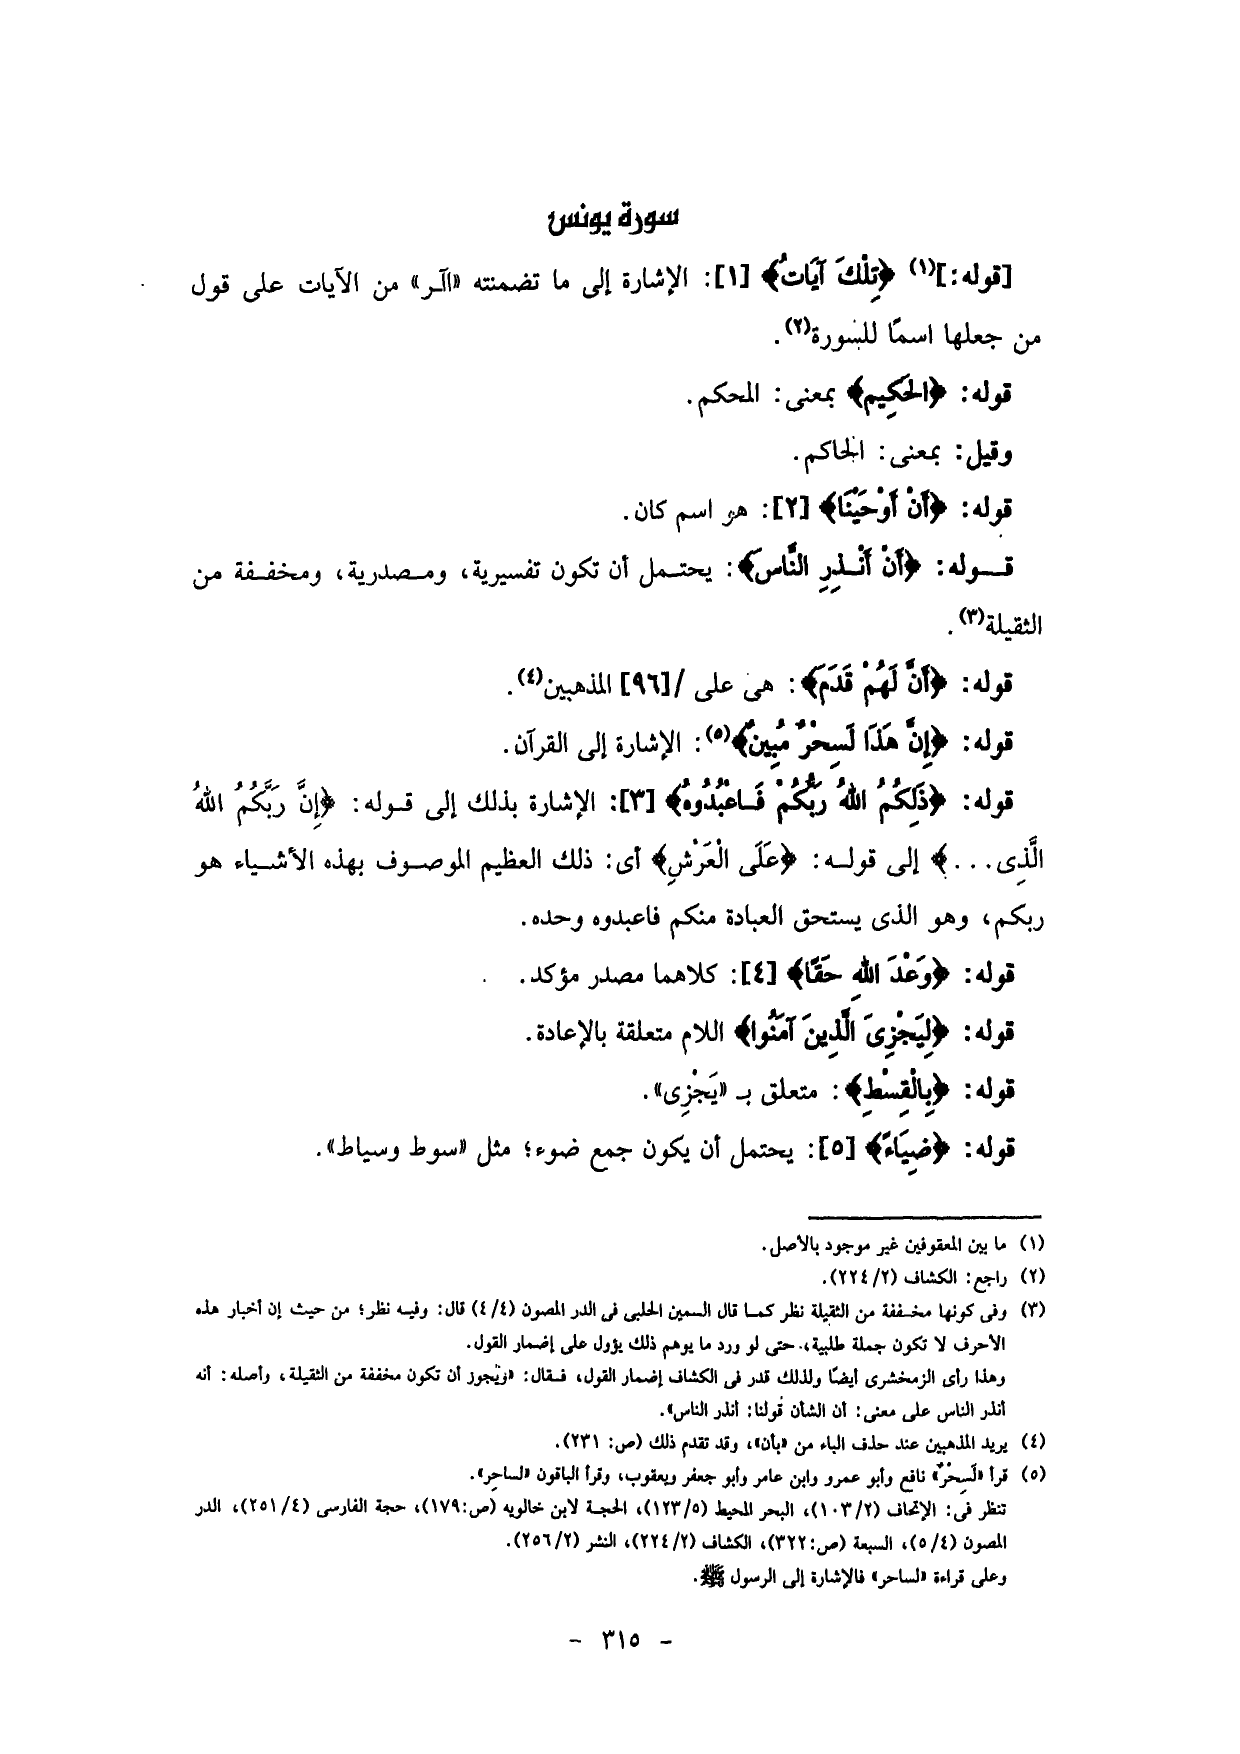 سورة يونس
[قوله:](١) ﴿تِلْكَ آيَاتُ﴾ [١]: الإشارة إلى ما تضمنته «الٓـر» من الآيات على قول
من جعلها اسمًا للسورة(٢).
قوله: ﴿الحَكِيمِ﴾ بمعنى: المحكم.
وقيل: بمعنى: الحاكم.
قوله: ﴿أَنْ أَوْحَيْنَا﴾ [٢]: هو اسم كان.
قـــوله: ﴿أَنْ أَنْـذِرِ النَّاسَ﴾: يحتـمل أن تكون تفسيرية، ومـصدرية، ومخفـفة من
الثقيلة(٣).
قوله: ﴿أَنَّ لَهُمْ قَدَمَ﴾: هى على /[٩٦] المذهبين(٤).
قوله: ﴿إِنَّ هَذَا لَسِحْرٌ مُبِينٌ﴾(٥): الإشارة إلى القرآن.
قوله: ﴿ذَلِكُمُ اللهُ رَبُّكُمْ فَـاعْبُدُوهُ﴾ [٣]: الإشارة بذلك إلى قـوله: ﴿إِنَّ رَبَّكُمُ اللهُ
الَّذِى...﴾ إلى قولـه: ﴿عَلَى الْعَرْشِ﴾ أى: ذلك العظيم الموصـوف بهذه الأشـياء هو
ربكم، وهو الذى يستحق العبادة منكم فاعبدوه وحده.
قوله: ﴿وَعْدَ اللهِ حَقًّا﴾ [٤]: كلاهما مصدر مؤكد.
قوله: ﴿لِيَجْزِىَ الَّذِينَ آمَنُوا﴾ اللام متعلقة بالإعادة.
قوله: ﴿بِالْقِسْطِ﴾: متعلق بـ «يَجْزِى».
قوله: ﴿ضِيَاءً﴾ [٥]: يحتمل أن يكون جمع ضوء؛ مثل «سوط وسياط».
(١) ما بين المعقوفين غير موجود بالأصل.
(٢) راجع: الكشاف (٢/ ٢٢٤).
(٣) وفى كونها مخـففة من الثقيلة نظر كمـا قال السمين الحلبى فى الدر المصون (٤/ ٤) قال: وفيـه نظر؛ من حيث إن أخبار هذه
الأحرف لا تكون جملة طلبية، حتى لو ورد ما يوهم ذلك يؤول على إضمار القول.
وهذا رأى الزمخشرى أيضًا ولذلك قدر فى الكشاف إضمار القول، فـقال: «ويجوز أن تكون مخففة من الثقيلة، وأصله: أنه
أنذر الناس على معنى: أن الشأن قولنا: أنذر الناس».
(٤) يريد المذهبين عند حذف الباء من «بأن»، وقد تقدم ذلك (ص: ٢٣١).
(٥) قرأ «لَسِحْرٌ» نافع وأبو عمرو وابن عامر وأبو جعفر ويعقوب، وقرأ الباقون «لساحِر».
تنظر فى: الإتحاف (٢/ ١٠٣)، البحر المحيط (٥/ ١٢٣)، الحجة لابن خالويه (ص:١٧٩)، حجة الفارسى (٤/ ٢٥١)، الدر
المصون (٤/ ٥)، السبعة (ص:٣٢٢)، الكشاف (٢/ ٢٢٤)، النشر (٢/ ٢٥٦).
وعلى قراءة «لساحر» فالإشارة إلى الرسول ﷺ.
- ٣١٥ -